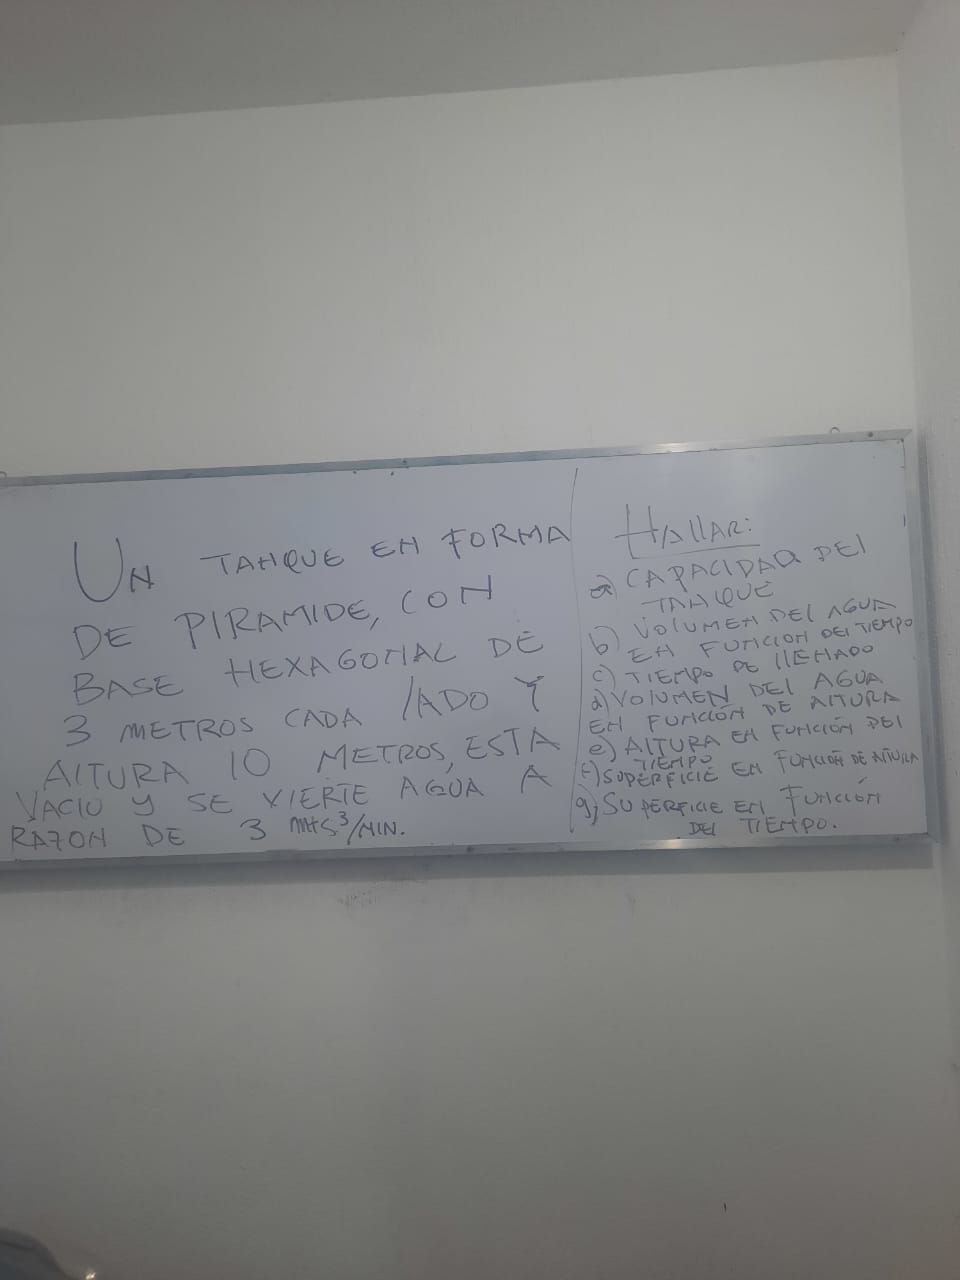 UN TANQUE EN FORMA
DE PIRAMIDE, CON
BASE HEXAGONAL DE
3 METROS CADA LADO Y
ALTURA 10 METROS, ESTA
VACIO Y SE VIERTE AGUA A
RAZON DE 3 mts³/MIN.
HALLAR:
a) CAPACIDAD DEL
TANQUE
b) VOLUMEN DEL AGUA
EN FUNCION DEL TIEMPO
c) TIEMPO DE LLENADO
d) VOLUMEN DEL AGUA
EN FUNCIÓN DE ALTURA
e) ALTURA EN FUNCIÓN DEL
TIEMPO
f) SUPERFICIE EN FUNCIÓN DE ALTURA
g) SUPERFICIE EN FUNCIÓN
DEL TIEMPO.